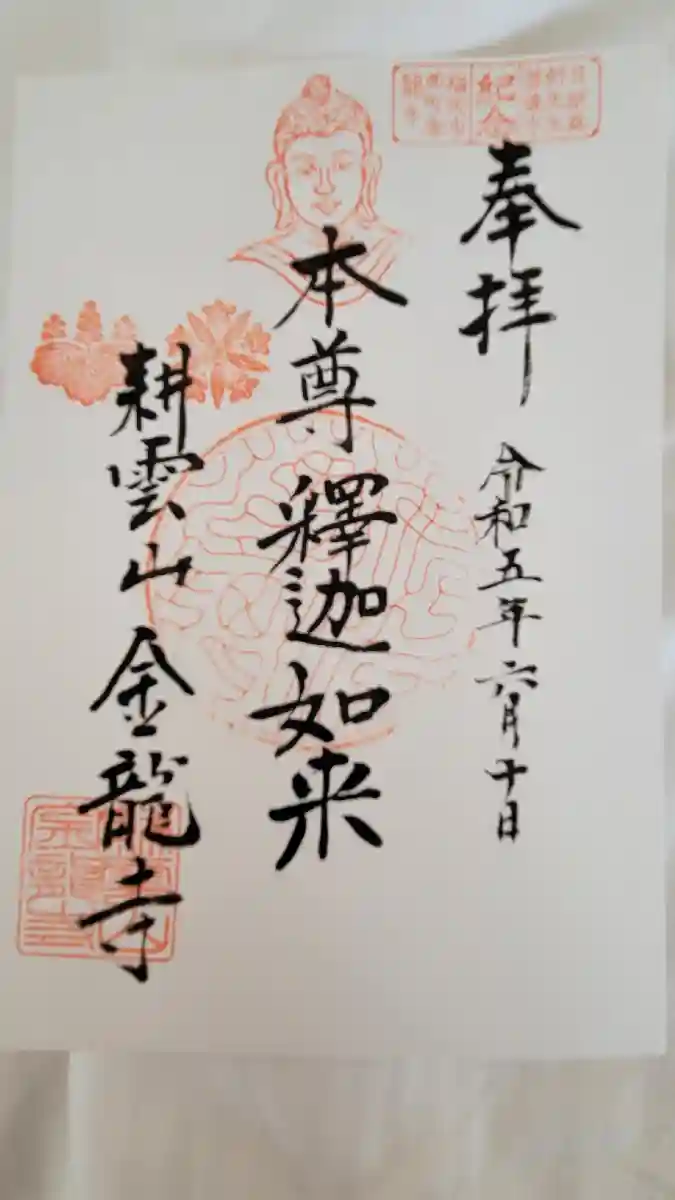 奉拝
令和五年六月十日
本尊釋迦如来
耕雲山金龍寺
紀念